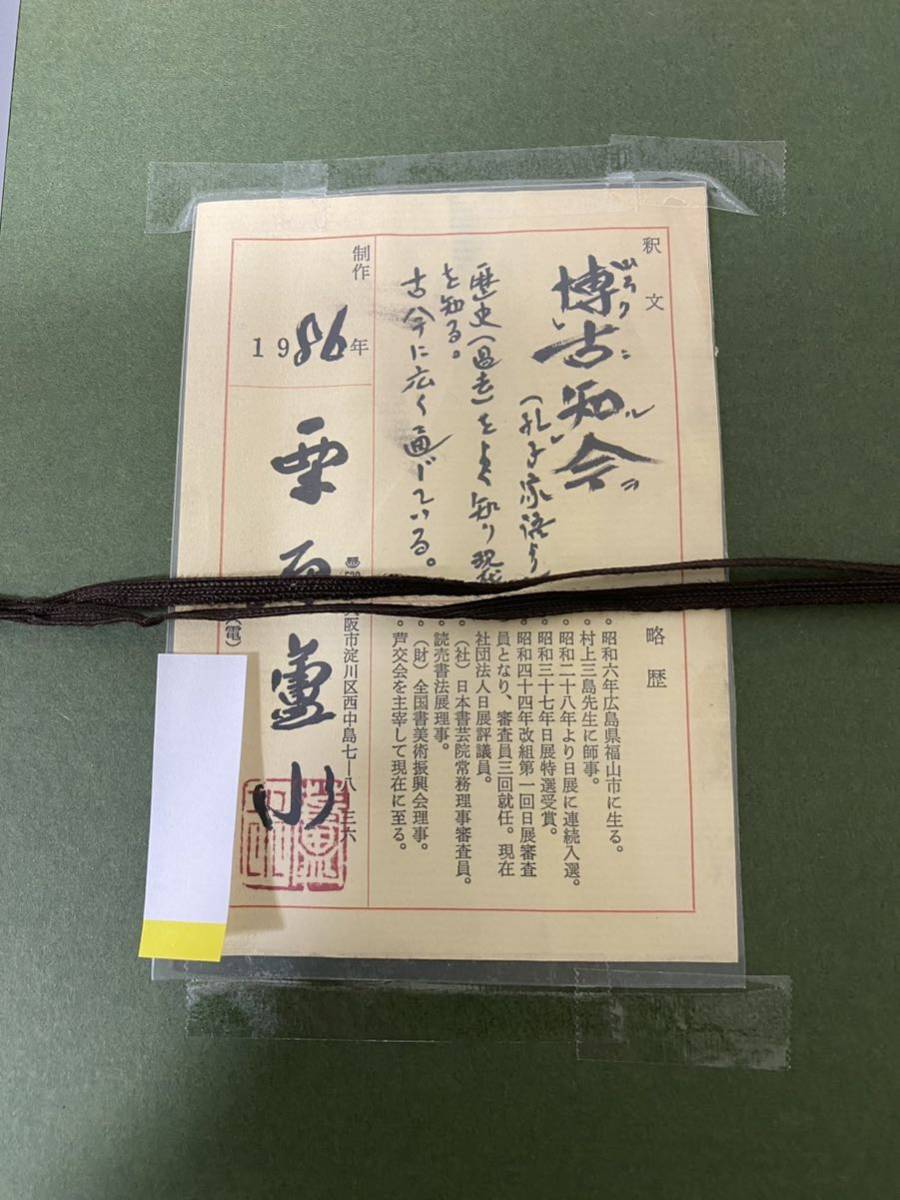 釈文
博古知今
ヒロク ニ ル ヲ
(孔子家語より
歴史(過去)をよく知り現代
を知る。
古今に広く通じている。
略歴
・昭和六年広島県福山市に生る。
・村上三島先生に師事。
・昭和二十八年より日展に連続入選。
・昭和三十七年日展特選受賞。
・昭和四十四年改組第一回日展審査
員となり、審査員三回就任。現在
社団法人日展評議員。
・(社)日本書芸院常務理事審査員。
・読売書法展理事。
・(財)全国書美術振興会理事。
・芦交会を主宰して現在に至る。
制作
1986年
栗原蘆水
阪市淀川区西中島七ー八 三六
電)